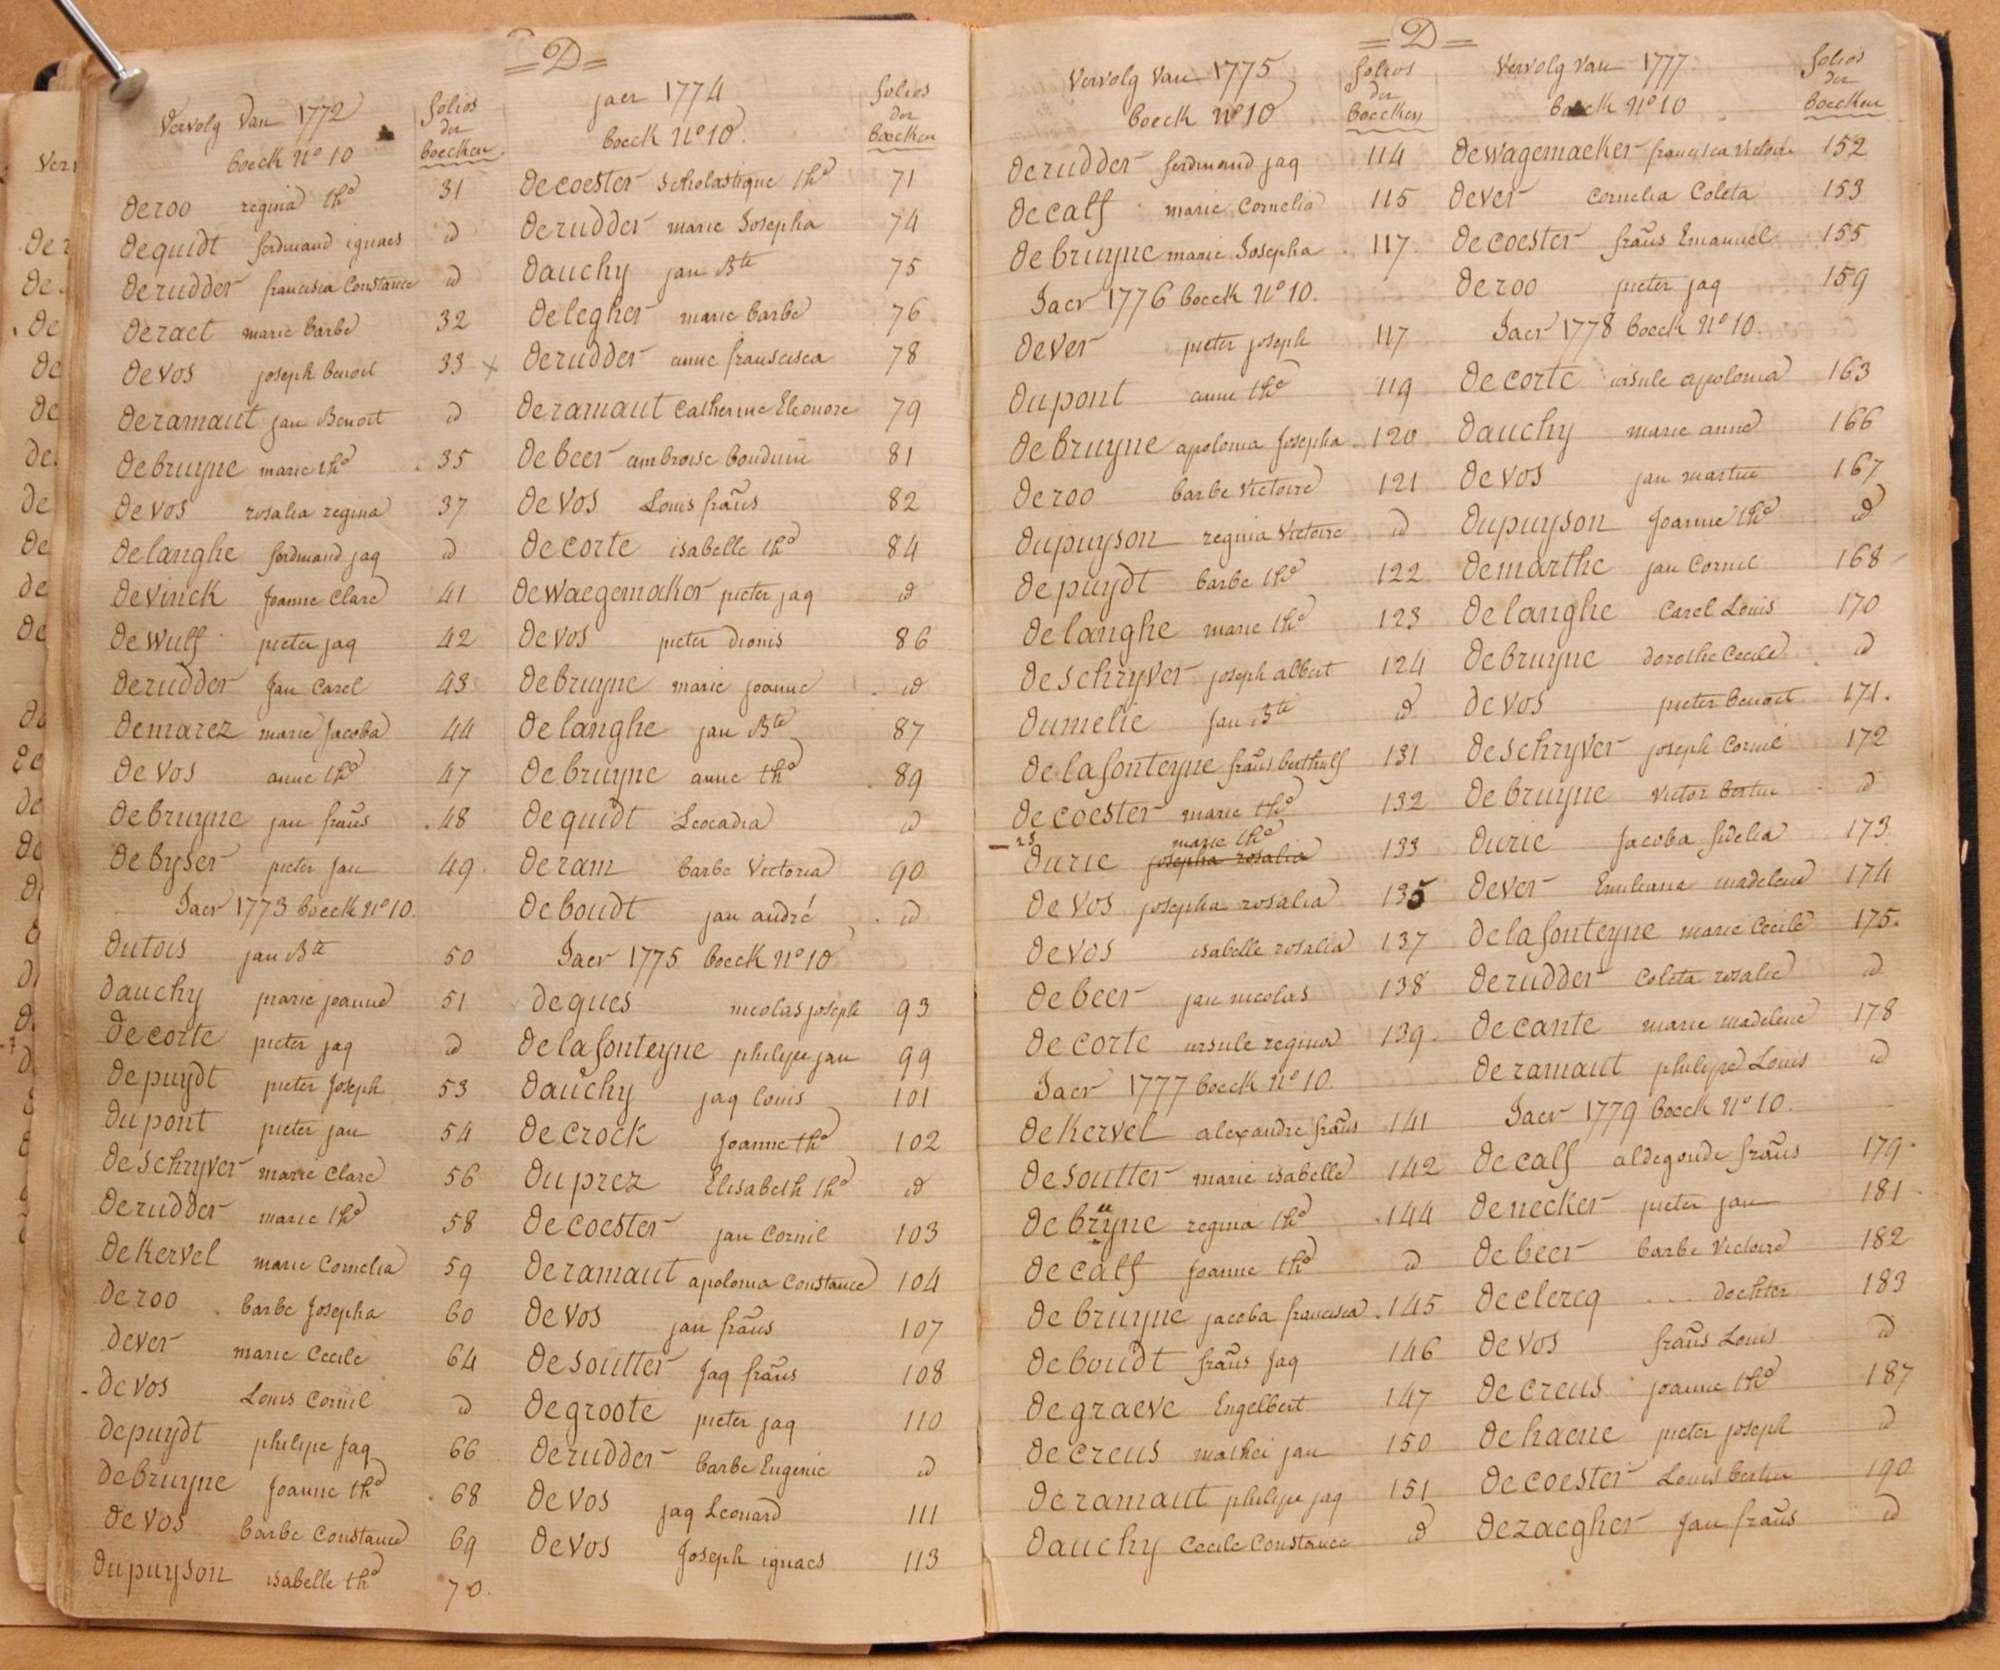 =D=
Vervolg van 1772
boeck N° 10
folios
der
boecken
deroo regina thé 31
dequidt ferdinand ignaes id
derudder francisca Constance id
deraet marie barbe 32
devos joseph benoit 33 x
deramaut jan Benoit id
debruyne marie thé 35
devos rosalia regina 37
delanghe ferdinand jaq id
devinck Joanne Clare 41
dewulf pieter jaq 42
derudder Jan Carel 43
demarez marie Jacoba 44
devos anne thé 47
debruyne jan frañs 48
debyser pieter Jan 49
Jaer 1773 boeck N° 10.
dutois jan Bte 50
dauchy marie joanne 51
decorte pieter jaq id
depuydt pieter Joseph 53
dupont pieter jan 54
deschryver marie Clare 56
derudder marie thé 58
dekervel marie Cornelia 59
deroo barbe Josepha 60
dever marie Cecile 64
devos Louis Cornil id
depuydt philipe Jaq 66
debruyne Joanne thé 68
devos barbe Constance 69
dupuyson isabelle thé 70.
jaer 1774
boeck N° 10.
folios
der
boecken
decoester scholastique thé 71
derudder marie Josepha 74
dauchy jan Bte 75
delegher marie barbe 76
derudder anne franscisca 78
deramaut Catherine Eleonore 79
debeer ambroise bouduin 81
devos Louis frañs 82
decorte isabelle thé 84
dewaegemaker pieter jaq id
devos pieter dionis 86
debruyne marie joanne id
delanghe jan Bte 87
debruyne anne thé 89
dequidt Leocadia id
deram barbe Victoria 90
deboudt jan andré id
Jaer 1775 boeck N° 10
deques nicolas joseph 93
delafonteyne philipe jan 99
dauchy jaq louis 101
decrock Joanne thé 102
duprez Elisabeth thé id
decoester jan Cornil 103
deramaut apolonia Constance 104
devos jan frañs 107
desoutter Jaq frañs 108
degroote pieter jaq 110
derudder barbe Eugenie id
devos jaq Leonard 111
devos Joseph ignaes 113
=D=
Vervolg van 1775
boeck N° 10
folios
der
boecken
derudder ferdinand jaq 114
decalf marie Cornelia 115
debruyne marie Josepha 117
Jaer 1776 boeck N° 10.
dever pieter joseph 117
dupont anne thé 119
debruyne apolonia Josepha 120
deroo barbe Victoire 121
dupuyson regina Victoire id
depuydt barbe thé 122
delanghe marie thé 123
deschryver joseph albert 124
dumelie Jan Bte id
delafonteyne frañs berthulf 131
decoester marie thé 132
marie thé
durie josepha rosalia 133
devos josepha rosalia 135
devos isabelle rosalia 137
debeer jan nicolas 138
decorte ursule regina 139.
Jaer 1777 boeck N° 10.
dekervel alexandre frañs 141
desoutter marie isabelle 142
debruyne regina thé 144
decalf Joanne thé id
debruyne jacoba francisca 145
deboudt frañs Jaq 146
degraeve Engelbert 147
decreus mathei jan 150
deramaut philipe jaq 151
dauchy Cecile Constance id
Vervolg van 1777
boeck N° 10
folios
der
boecken
dewagemaeker francisca Victoire 152
dever Cornelia Coleta 153
decoester frañs Emanuel 155
deroo pieter jaq 159
Jaer 1778 boeck N° 10.
decorte ursule apolonia 163
dauchy marie anne 166
devos jan martin 167
dupuyson Joanne thé id
demarthe jan Cornil 168
delanghe Carel Louis 170
debruyne dorothe Cecile id
devos pieter benoit 171.
deschryver joseph Cornil 172
debruyne Victor bertin id
durie Jacoba fidelia 173
dever Emiliana madelene 174
delafonteyne marie Cecile 175.
derudder Coleta rosalie id
decante marie madelene 178
deramaut philipe Louis id
Jaer 1779 boeck N° 10.
decalf aldegonde frañs 179
denecker pieter jan 181
debeer barbe Victoire 182
declercq ... dochter 183
devos frañs Louis id
decreus joanne thé 187
dehaene pieter joseph id
decoester Louis bertin 190
dezaegher Jan frañs id